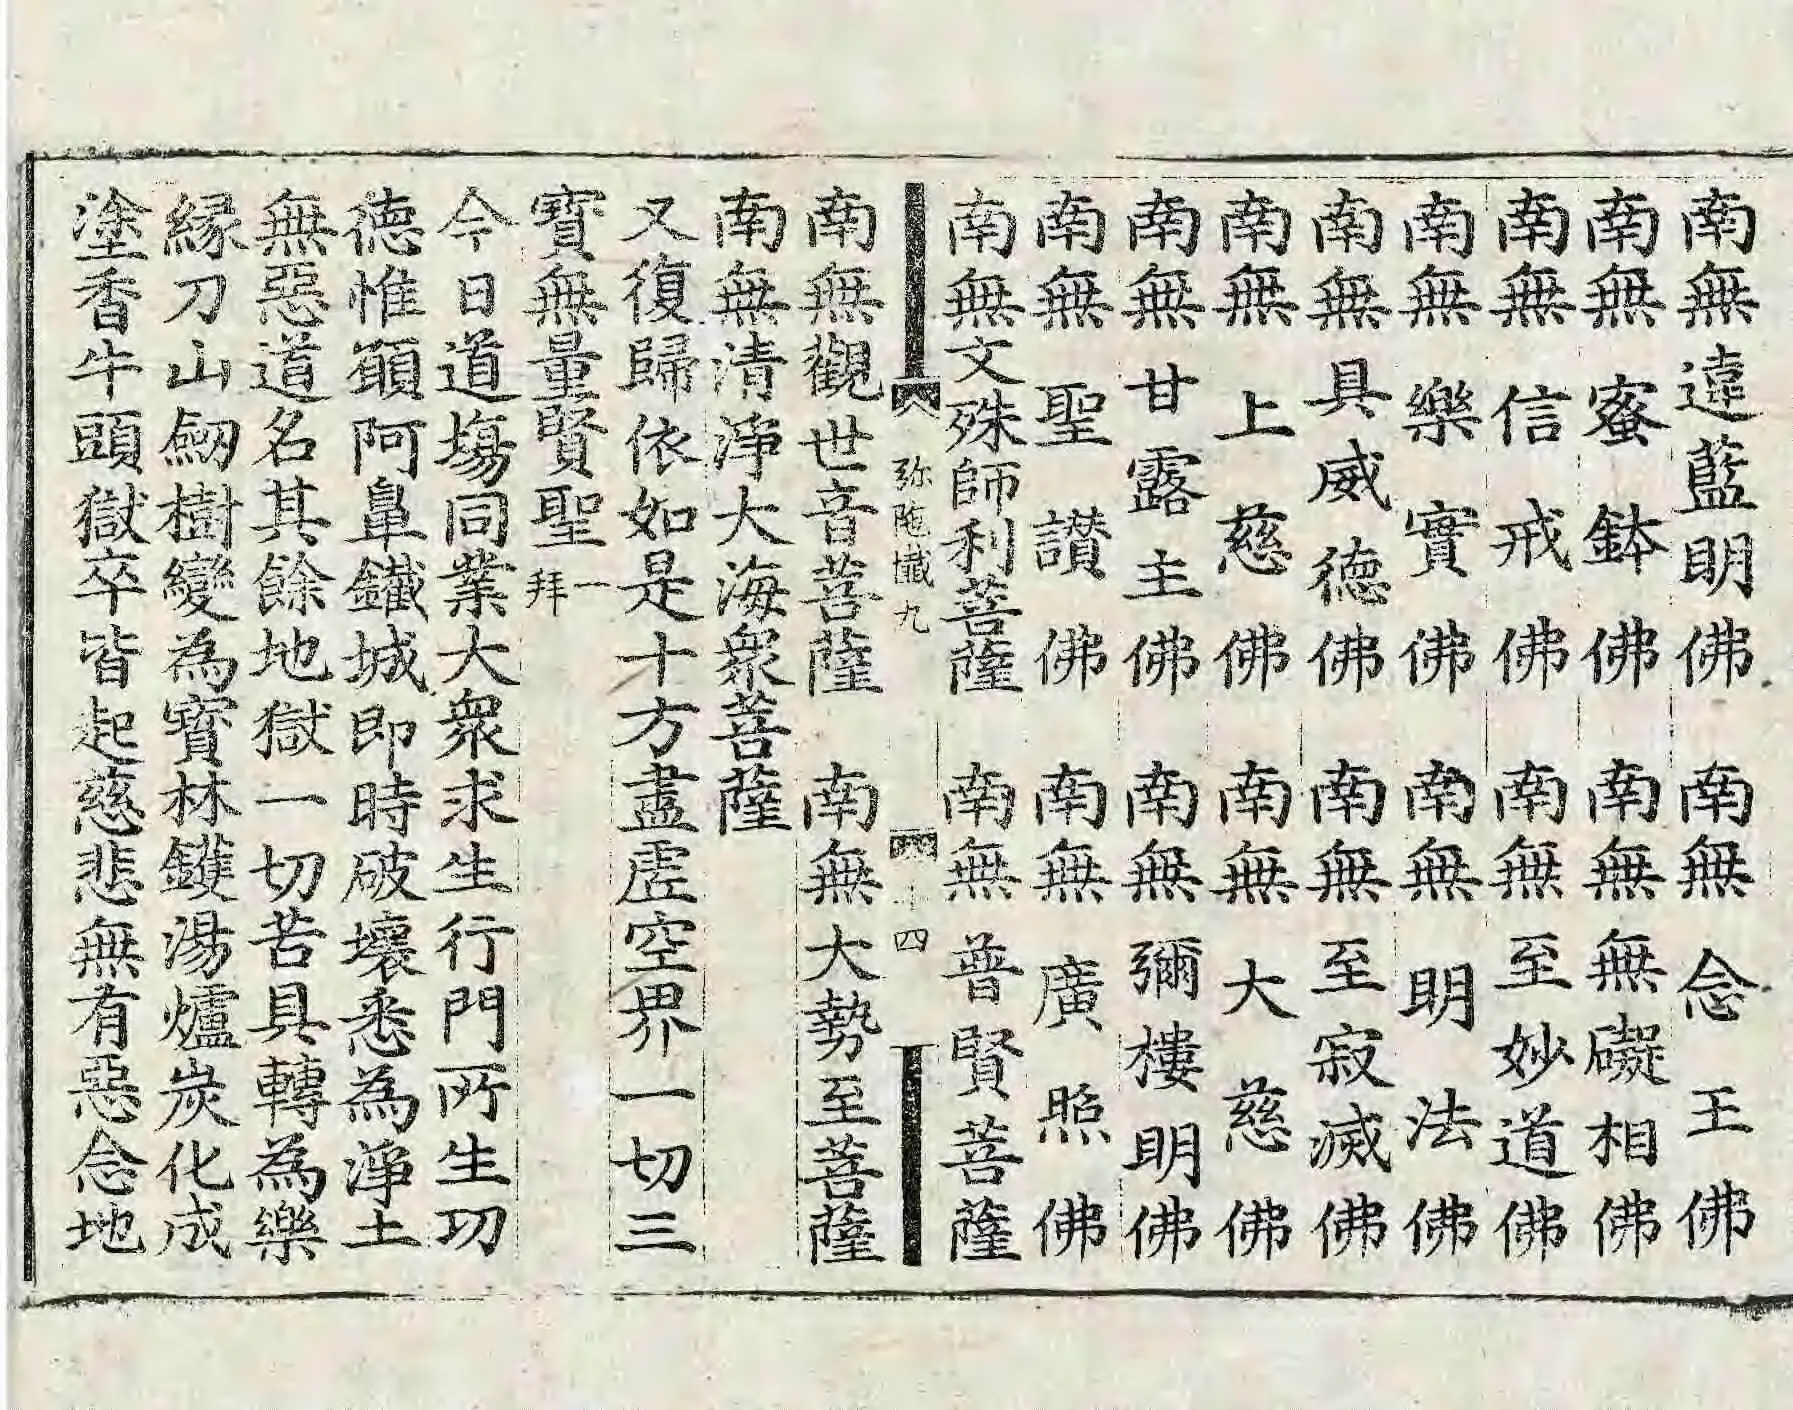 南無遠藍明佛　南無念王佛
南無蜜鉢佛　南無無礙相佛
南無信戒佛　南無至妙道佛
南無樂實佛　南無明法佛
南無具威德佛　南無至寂滅佛
南無上慈佛　南無大慈佛
南無甘露主佛　南無彌樓明佛
南無聖讃佛　南無廣照佛
南無文殊師利菩薩　南無普賢菩薩
弥陁懺九　十四
南無觀世音菩薩　南無大勢至菩薩
南無清淨大海衆菩薩
又復歸依如是十方盡虛空界一切三
寳無量賢聖一拜
今日道塲同業大衆求生行門所生功
德惟願阿鼻鐵城即時破壞悉為淨土
無惡道名其餘地獄一切苦具轉為樂
縁刀山劒樹變為寳林鑊湯爐炭化成
塗香牛頭獄卒皆起慈悲無有惡念地